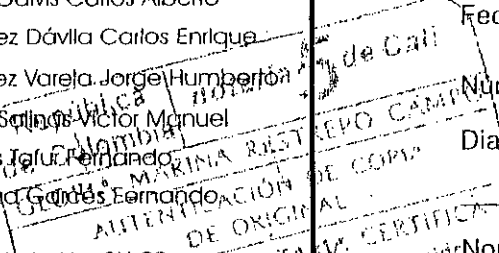 Galvis Carlos Alberto
ez Dávila Carlos Enrique
ez Varela Jorge Humberto
Salinas Victor Manuel
Tafur Fernando
Garcés Fernando
República
de Colombia
Notaría 5 de Cali
MARINA RESTREPO CAMPO
AUTENTICACIÓN DE COPIA
DE ORIGINAL
CERTIFICA
Fec
Núm
Dia
Nor